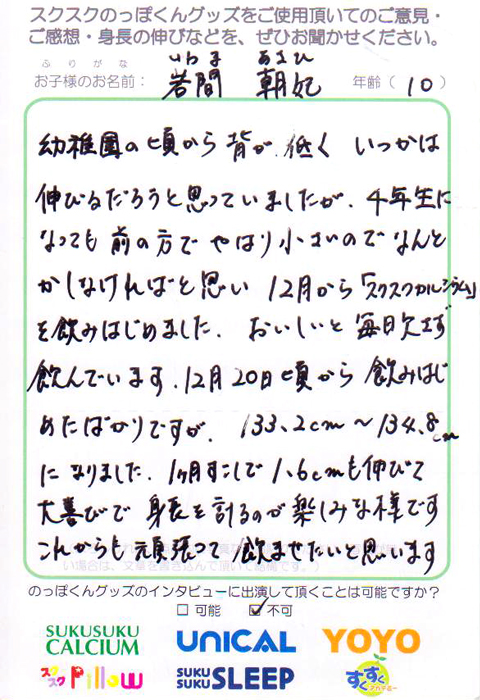 スクスクのっぽくんグッズをご使用頂いてのご意見・
ご感想・身長の伸びなどを、ぜひお聞かせください。
ふりがな いわま あさひ
お子様のお名前： 岩間 朝妃 年齢（ 10 ）
幼稚園の頃から背が低く いつかは
伸びるだろうと思っていましたが、4年生に
なっても前の方でやはり小さいのでなんと
かしなければと思い 12月から「スクスクカルシウム」
を飲みはじめました。おいしいと毎日欠さず
飲んでいます。12月20日頃から飲みはじ
めたばかりですが、133.2cm〜134.8cm
になりました。1ヶ月すこしで1.6cmも伸びて
大喜びで身長を計るのが楽しみな様です
これからも頑張って飲ませたいと思います
い場合は、文章を書き込んで頂いて結構です。）
のっぽくんグッズのインタビューに出演して頂くことは可能ですか？
□ 可能 ☑ 不可
SUKUSUKU CALCIUM UNICAL YOYO
スクスク Pillow SUKU SUKU SLEEP すくすくアカデミー